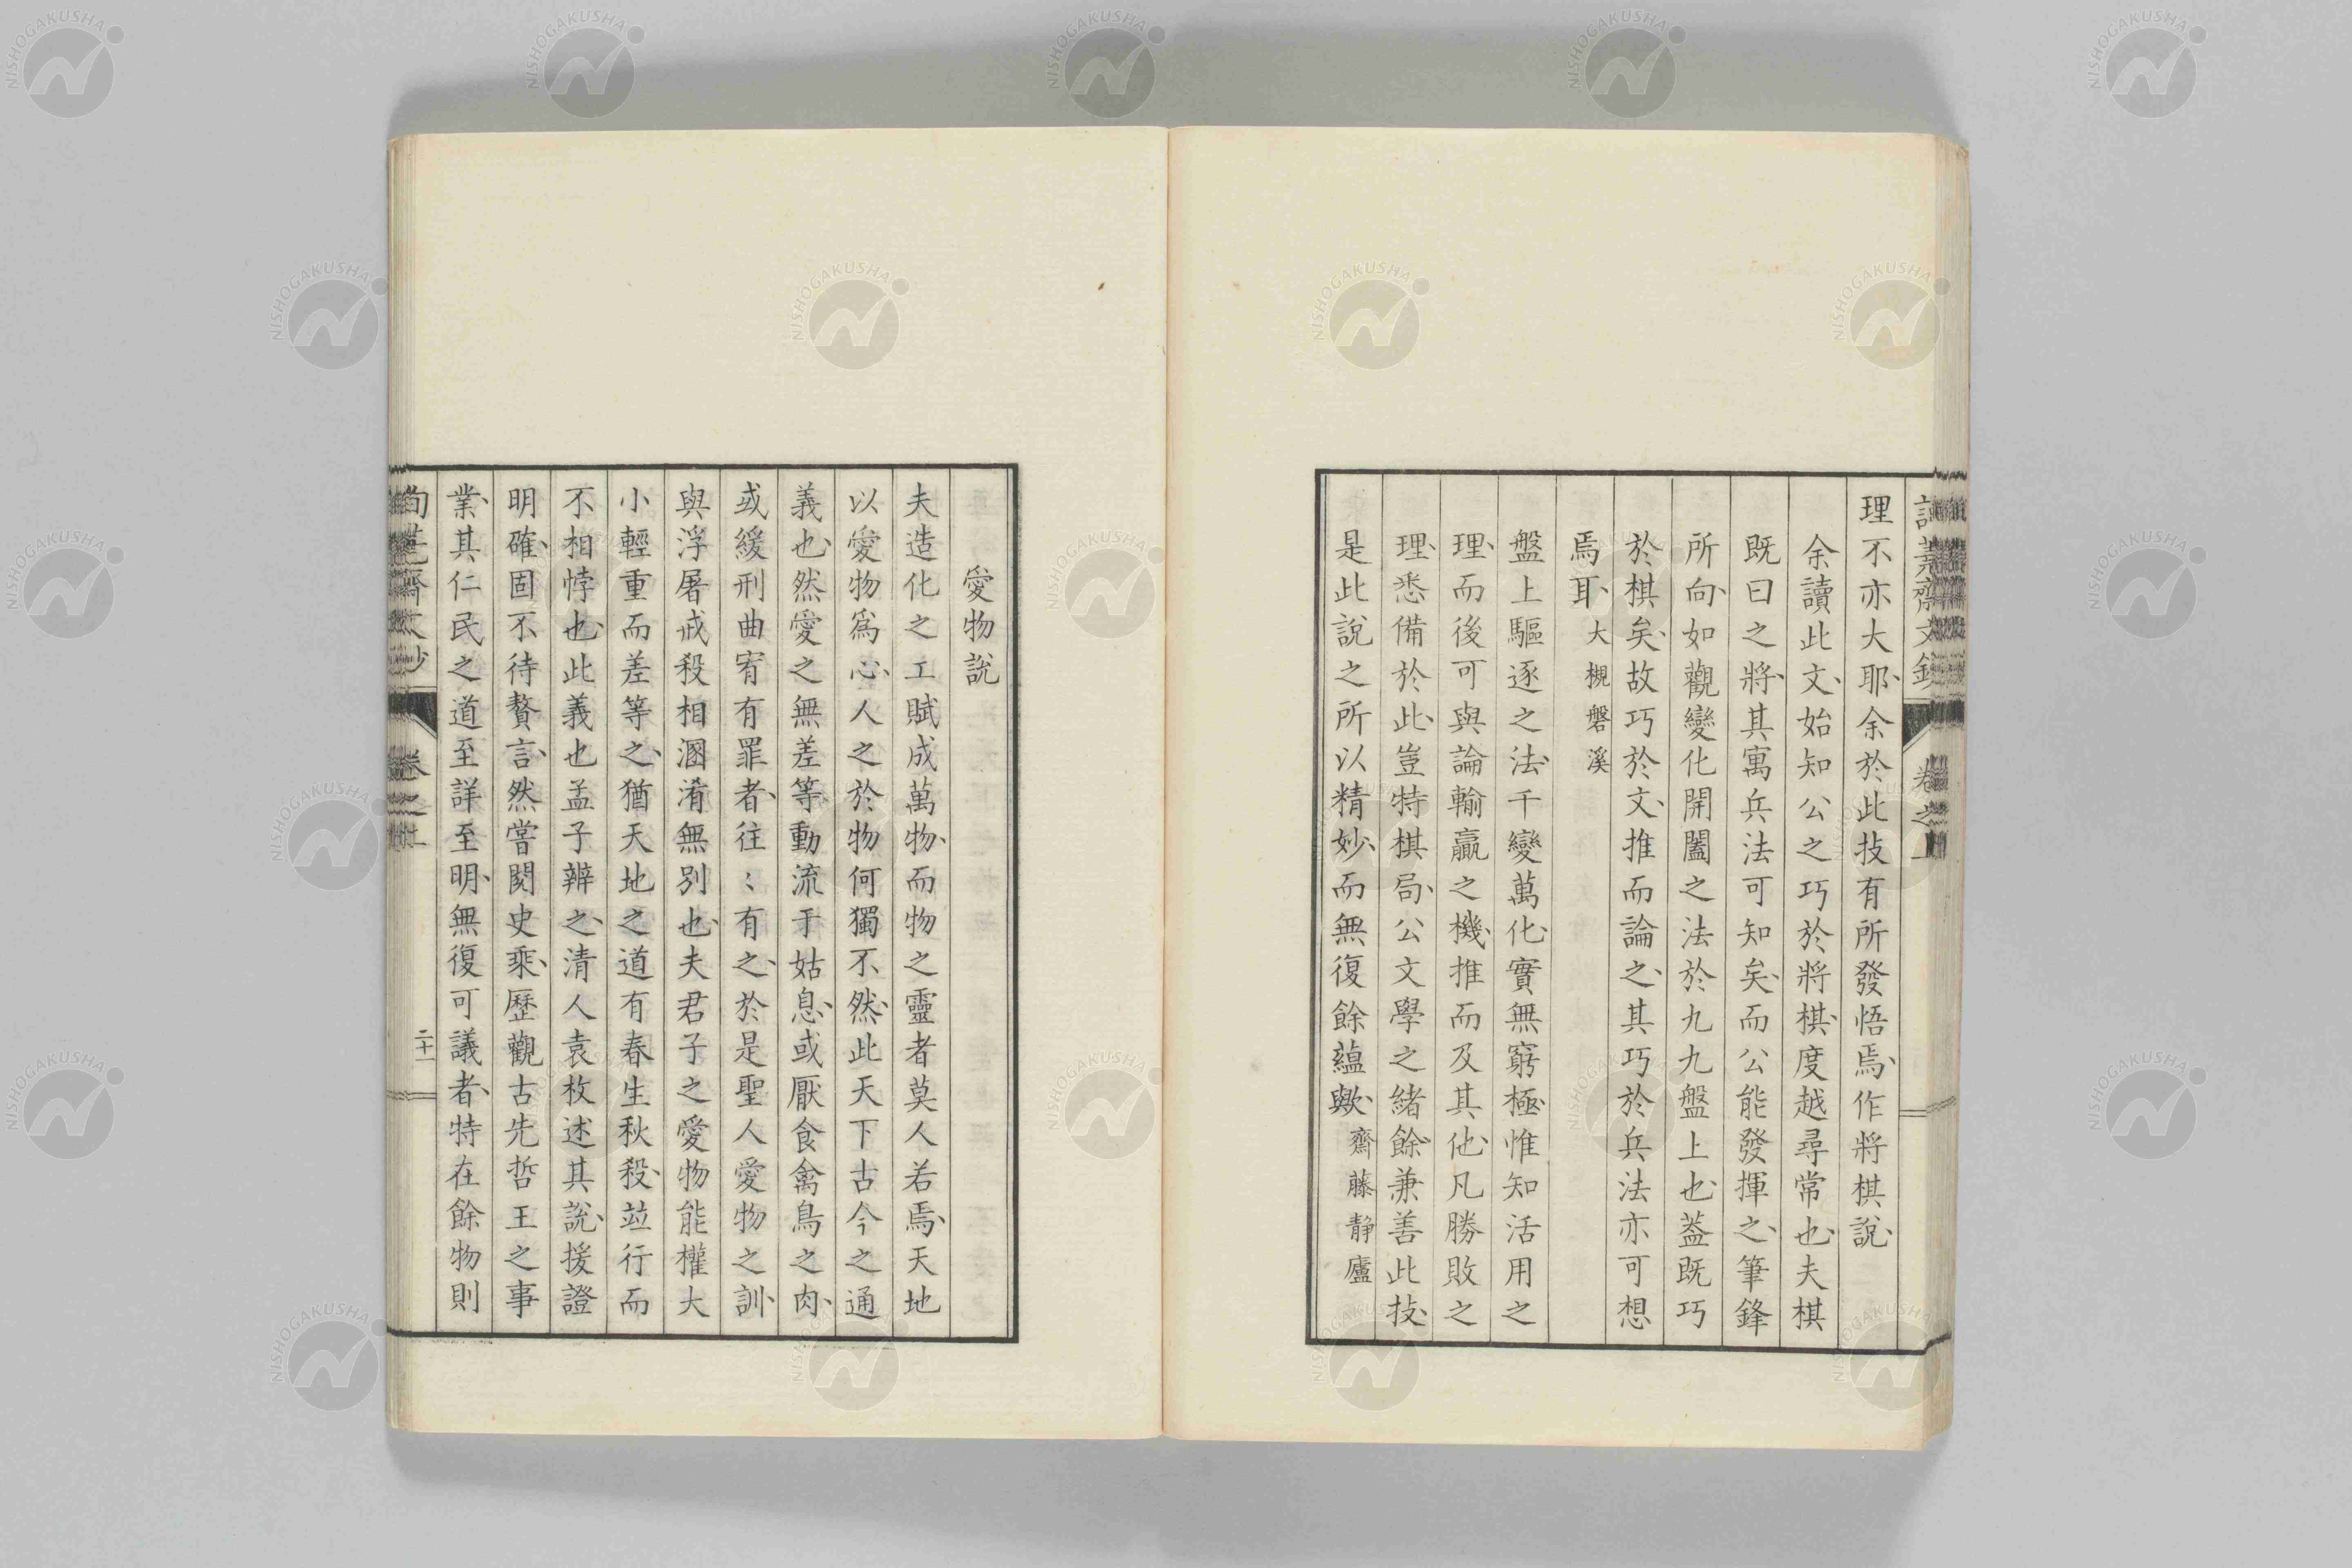 理不亦大耶、余於此技有所發悟焉、作將棋說、
余讀此文、始知公之巧於將棋、度越尋常也、夫棋
既曰之將、其寓兵法可知矣、而公能發揮之、筆鋒
所向、如觀變化開闔之法於九九盤上也、蓋既巧
於棋矣、故巧於文、推而論之、其巧於兵法亦可想
焉耳、大槻磐溪
盤上驅逐之法、千變萬化、實無窮極、惟知活用之
理、而後可與論輸贏之機、推而及其他、凡勝敗之
理、悉備於此、豈特棋局、公文學之緒餘、兼善此技、
是此說之所以精妙、而無復餘蘊歟、齋藤静廬
愛物說
夫造化之工賦成萬物、而物之靈者莫人若焉、天地
以愛物爲心、人之於物何獨不然、此天下古今之通
義也、然愛之無差等、動流于姑息、或厭食禽鳥之肉、
或緩刑曲宥有罪者、往〻有之、於是聖人愛物之訓、
與浮屠戒殺相溷淆無別也、夫君子之愛物能權大
小輕重而差等之、猶天地之道有春生秋殺、竝行而
不相悖也、此義也孟子辨之、清人袁枚述其說、援證
明確、固不待贅言、然嘗閱史乘、歷觀古先哲王之事
業、其仁民之道至詳至明、無復可議者、特在餘物則
卷之
二十一
NISHOGAKUSHA